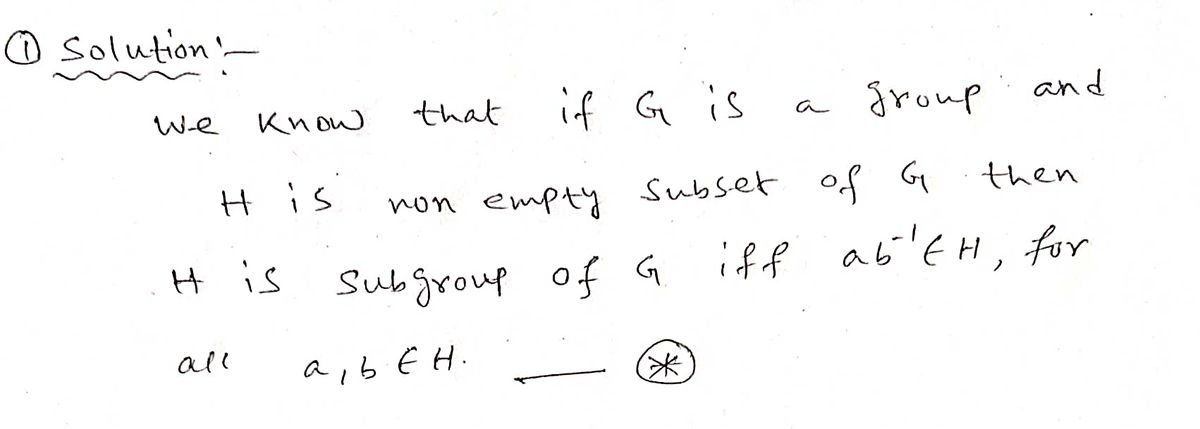 ① Solution:-
We know that if G is a group and
H is non empty subset of G then
H is subgroup of G iff ab⁻¹ ∈ H, for
all a, b ∈ H. — ⊛